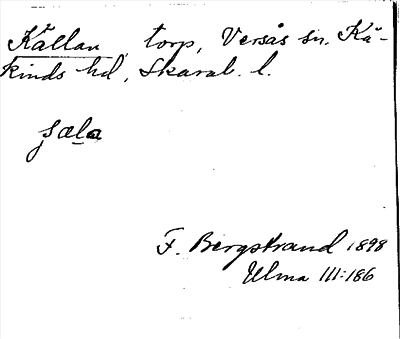 Källan, torp, Versås sn. Kå-
kinds hd, Skarab. l.
F. Bergstrand 1898
Ulma III:186